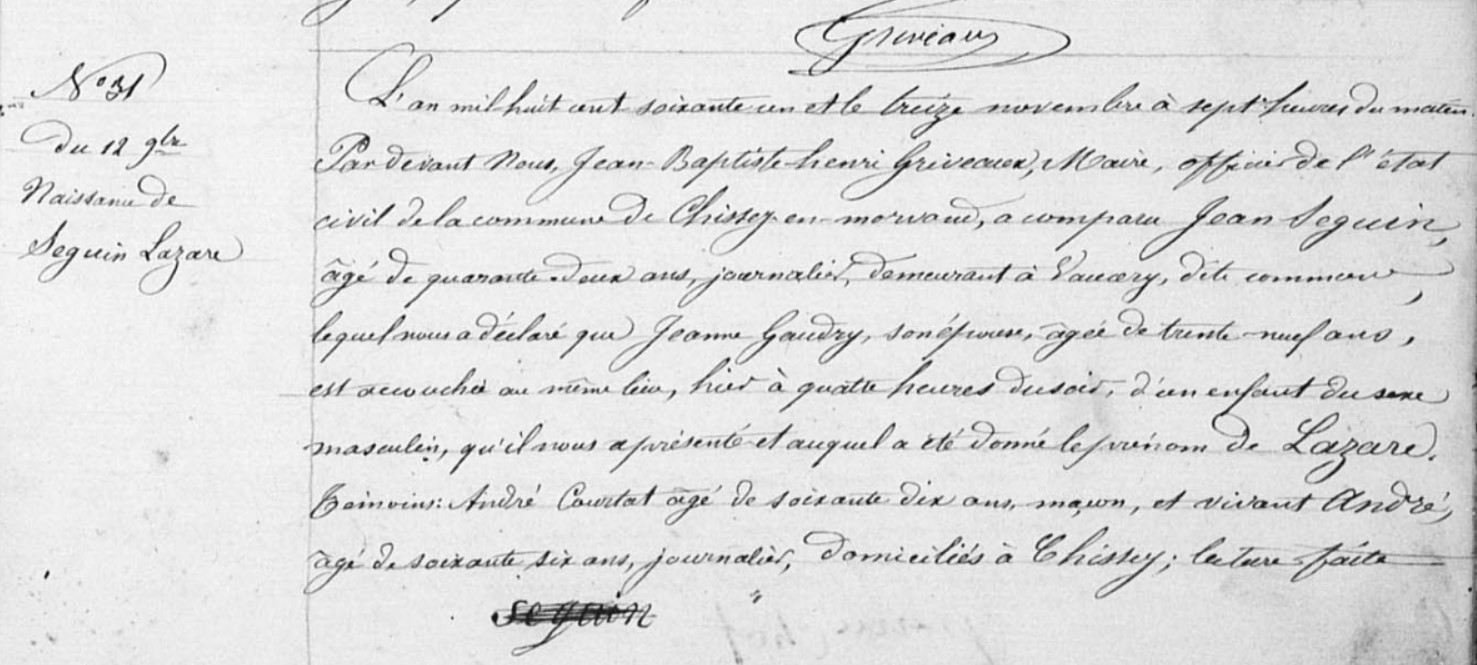 Griveaux
N° 31
du 12 9bre
Naissance de
Seguin Lazare
L'an mil huit cent soixante un et le treize novembre à sept heures du matin.
Par devant Nous, Jean-Baptiste henri Griveaux, Maire, officier de l'état
civil de la commune de Chissey-en-morvand, a comparu Jean Seguin,
âgé de quarante-deux ans, journalier, demeurant à Vaucery, dite commune,
lequel nous a déclaré que Jeanne Gaudry, son épouse, âgée de trente-neuf ans,
est accouchée au même lieu, hier à quatre heures du soir, d'un enfant du sexe
masculin, qu'il nous a présenté et auquel a été donné le prénom de Lazare.
Témoins: André Courtat âgé de soixante dix ans, maçon, et vivant André,
âgé de soixante six ans, journalier, domiciliés à Chissey; lecture faite
Seguin